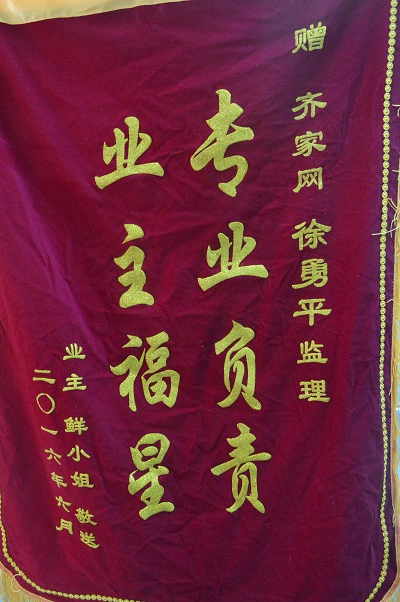 赠 齐家网 徐勇平监理
专业负责
业主福星
业主 鲜小姐 敬送
二〇一六年六月